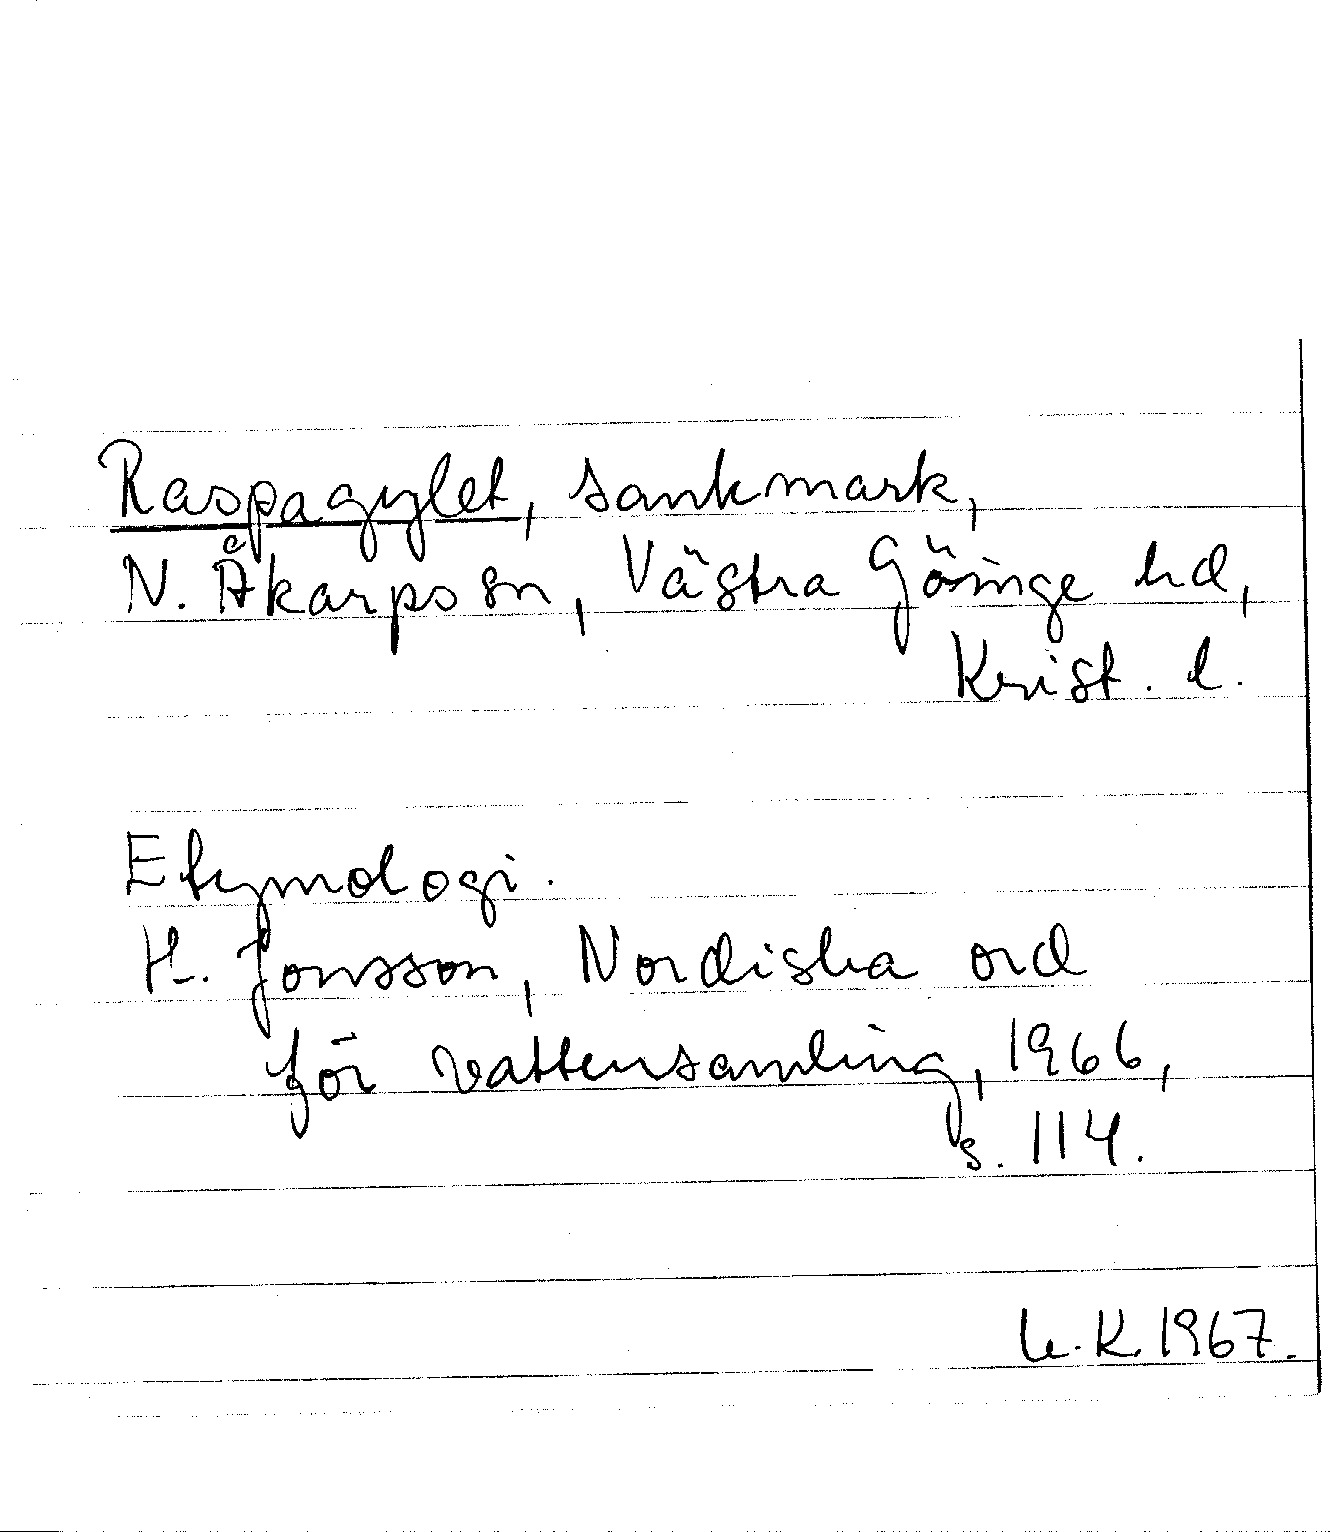 Raspagylet, sankmark,
N. Åkarps sn, Västra Göinge hd,
Krist. l.
Etymologi.
H. Jonsson, Nordiska ord
för vattensamling, 1966,
s. 114.
K. 1967.